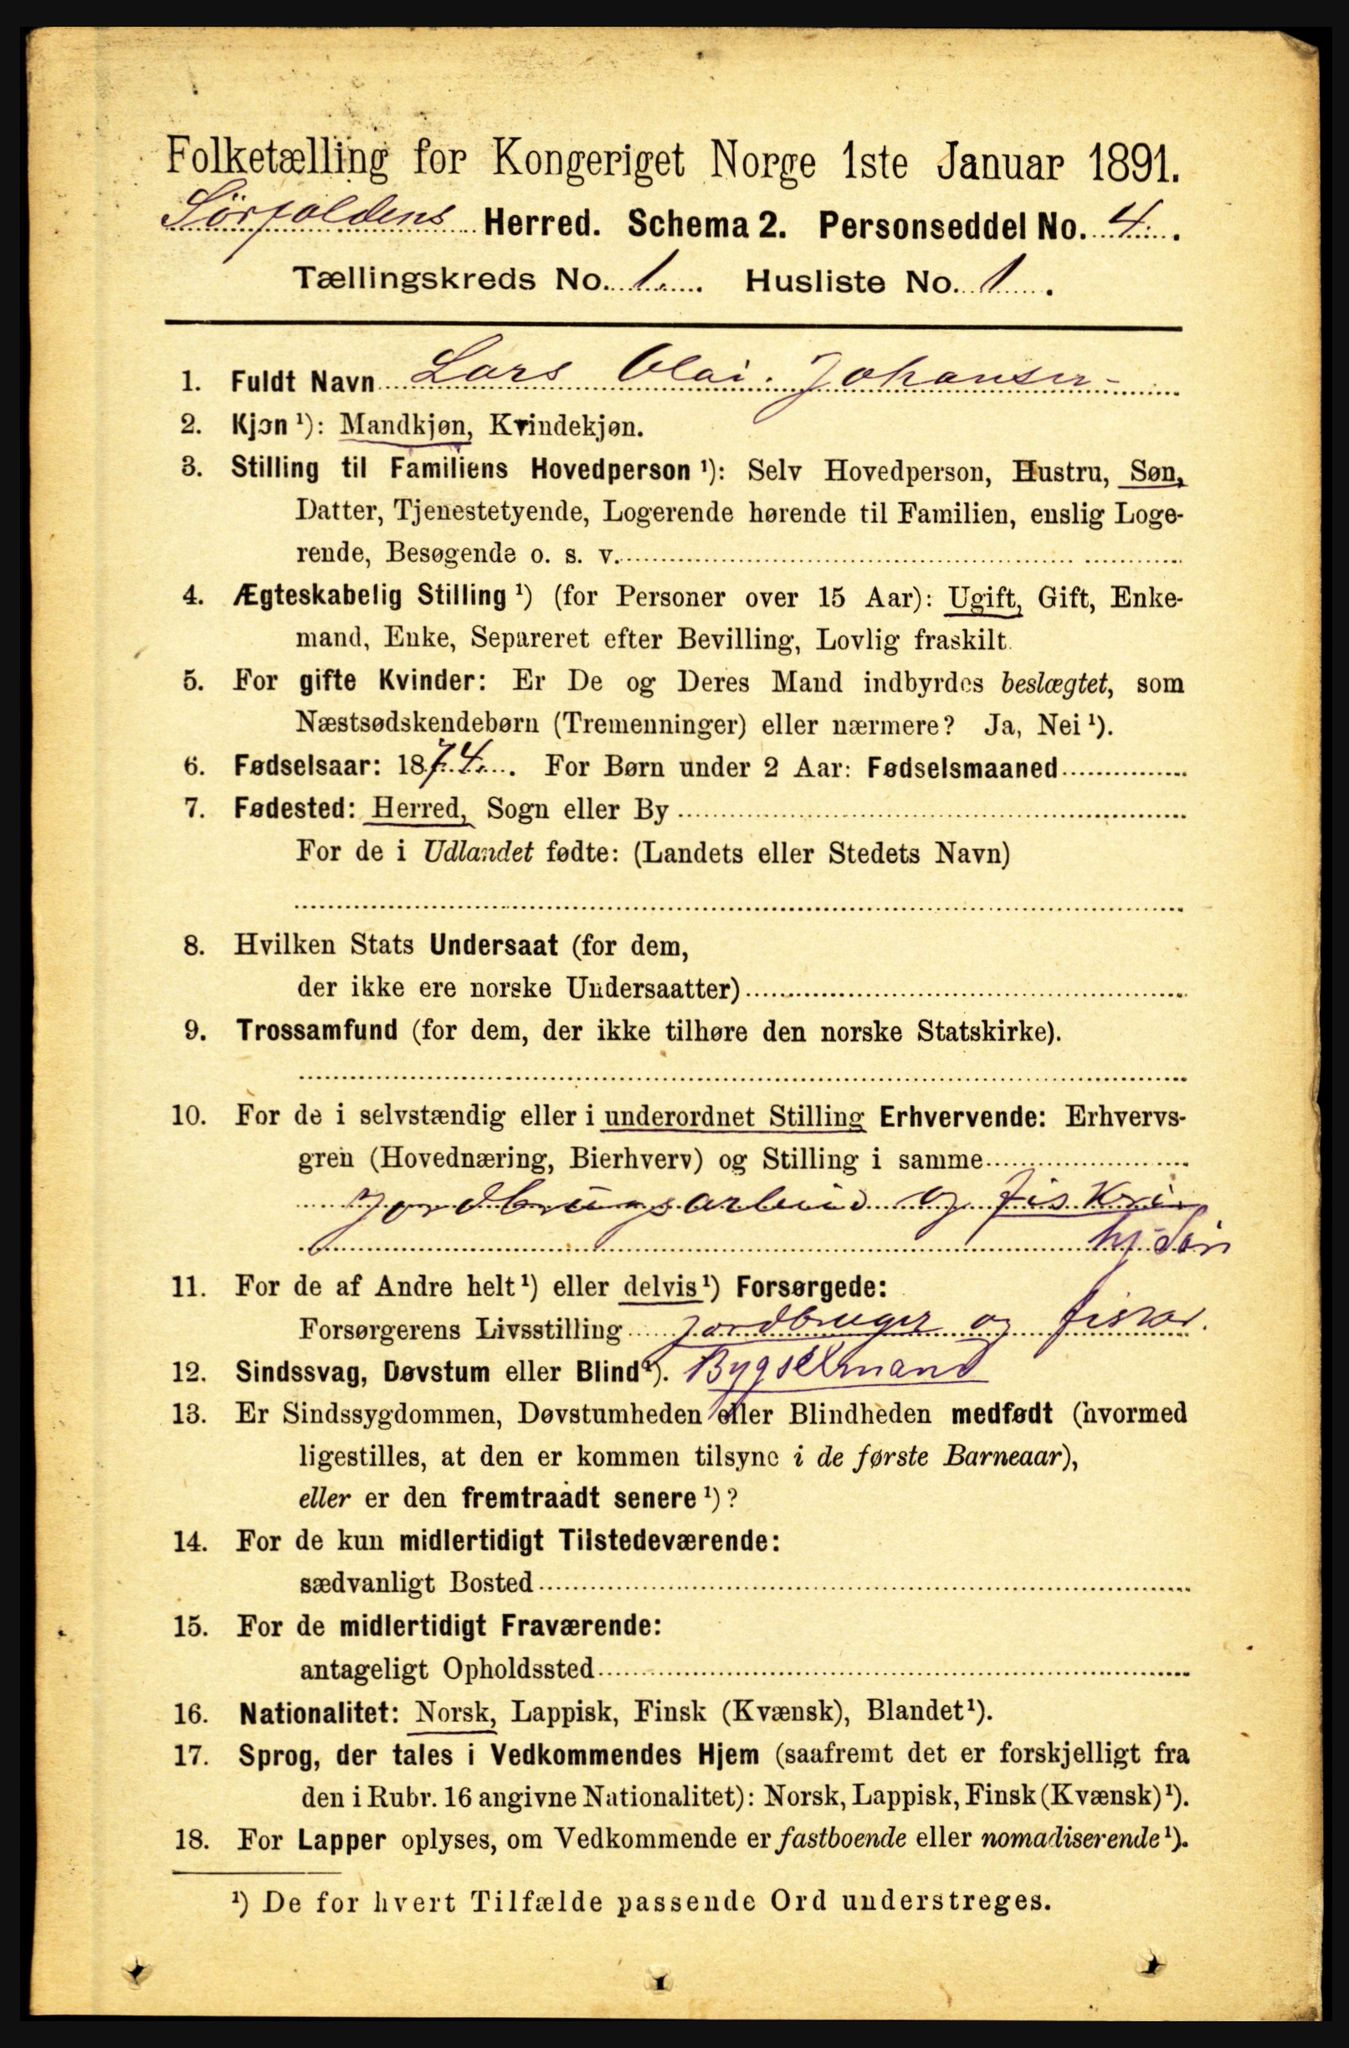 Folketælling for Kongeriget Norge 1ste Januar 1891.
Sørfoldens Herred. Schema 2. Personseddel No. 4.
Tællingskreds No. 1. Husliste No. 1.
1. Fuldt Navn Lars Olai Johansen
2. Kjøn ¹): Mandkjøn, Kvindekjøn.
3. Stilling til Familiens Hovedperson ¹): Selv Hovedperson, Hustru, Søn,
Datter, Tjenestetyende, Logerende hørende til Familien, enslig Loge-
rende, Besøgende o. s. v.
4. Ægteskabelig Stilling ¹) (for Personer over 15 Aar): Ugift, Gift, Enke-
mand, Enke, Separeret efter Bevilling, Lovlig fraskilt.
5. For gifte Kvinder: Er De og Deres Mand indbyrdes beslægtet, som
Næstsødskendebørn (Tremenninger) eller nærmere? Ja, Nei ¹).
6. Fødselsaar: 1874. For Børn under 2 Aar: Fødselsmaaned
7. Fødested: Herred, Sogn eller By
For de i Udlandet fødte: (Landets eller Stedets Navn)
8. Hvilken Stats Undersaat (for dem,
der ikke ere norske Undersaatter)
9. Trossamfund (for dem, der ikke tilhøre den norske Statskirke).
10. For de i selvstændig eller i underordnet Stilling Erhvervende: Erhvervs-
gren (Hovednæring, Bierhverv) og Stilling i samme
Jordbrugsarbeid og fiskeri
11. For de af Andre helt ¹) eller delvis ¹) Forsørgede:
Forsørgerens Livsstilling Jordbruger og fisker.
12. Sindssvag, Døvstum eller Blind ¹). Bygselmand
13. Er Sindssygdommen, Døvstumheden eller Blindheden medfødt (hvormed
ligestilles, at den er kommen tilsyne i de første Barneaar),
eller er den fremtraadt senere ¹)?
14. For de kun midlertidigt Tilstedeværende:
sædvanligt Bosted
15. For de midlertidigt Fraværende:
antageligt Opholdssted
16. Nationalitet: Norsk, Lappisk, Finsk (Kvænsk), Blandet ¹).
17. Sprog, der tales i Vedkommendes Hjem (saafremt det er forskjelligt fra
den i Rubr. 16 angivne Nationalitet): Norsk, Lappisk, Finsk (Kvænsk) ¹).
18. For Lapper oplyses, om Vedkommende er fastboende eller nomadiserende ¹).
¹) De for hvert Tilfælde passende Ord understreges.